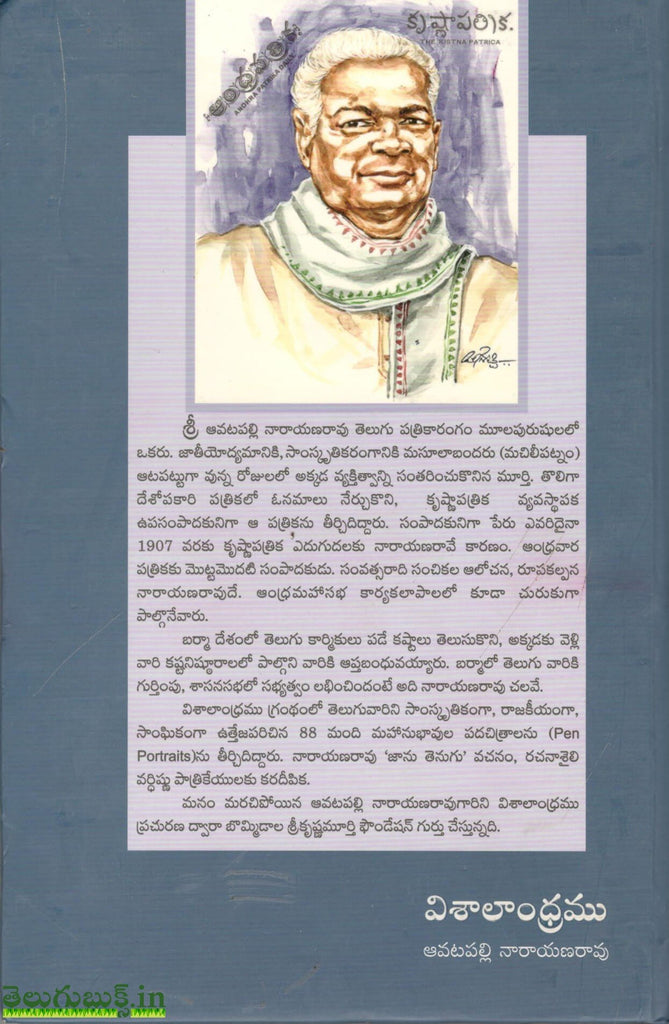 ఆంధ్రపత్రిక
ANDHRA PATRIKA DAILY
కృష్ణాపత్రిక.
THE KISTNA PATRICA
శ్రీ ఆవటపల్లి నారాయణరావు తెలుగు పత్రికారంగం మూలపురుషులలో
ఒకరు. జాతీయోద్యమానికి, సాంస్కృతికరంగానికి మసూలాబందరు (మచిలీపట్నం)
ఆటపట్టుగా వున్న రోజులలో అక్కడ వ్యక్తిత్వాన్ని సంతరించుకొనిన మూర్తి. తొలిగా
దేశోపకారి పత్రికలో ఓనమాలు నేర్చుకొని, కృష్ణాపత్రిక వ్యవస్థాపక
ఉపసంపాదకునిగా ఆ పత్రికను తీర్చిదిద్దారు. సంపాదకునిగా పేరు ఎవరిదైనా
1907 వరకు కృష్ణాపత్రిక ఎదుగుదలకు నారాయణరావే కారణం. ఆంధ్రవార
పత్రికకు మొట్టమొదటి సంపాదకుడు. సంవత్సరాది సంచికల ఆలోచన, రూపకల్పన
నారాయణరావుదే. ఆంధ్రమహాసభ కార్యకలాపాలలో కూడా చురుకుగా
పాల్గొనేవారు.
బర్మా దేశంలో తెలుగు కార్మికులు పడే కష్టాలు తెలుసుకొని, అక్కడకు వెళ్లి
వారి కష్టనిష్ఠూరాలలో పాల్గొని వారికి ఆప్తబంధువయ్యారు. బర్మాలో తెలుగు వారికి
గుర్తింపు, శాసనసభలో సభ్యత్వం లభించిందంటే అది నారాయణరావు చలవే.
విశాలాంధ్రము గ్రంథంలో తెలుగువారిని సాంస్కృతికంగా, రాజకీయంగా,
సాంఘికంగా ఉత్తేజపరిచిన 88 మంది మహానుభావుల పదచిత్రాలను (Pen
Portraits)ను తీర్చిదిద్దారు. నారాయణరావు 'జాను తెనుగు' వచనం, రచనాశైలి
వర్ధిష్ణు పాత్రికేయులకు కరదీపిక.
మనం మరచిపోయిన ఆవటపల్లి నారాయణరావుగారిని విశాలాంధ్రము
ప్రచురణ ద్వారా బొమ్మిడాల శ్రీకృష్ణమూర్తి ఫౌండేషన్ గుర్తు చేస్తున్నది.
విశాలాంధ్రము
ఆవటపల్లి నారాయణరావు
తెలుగుబుక్స్.in